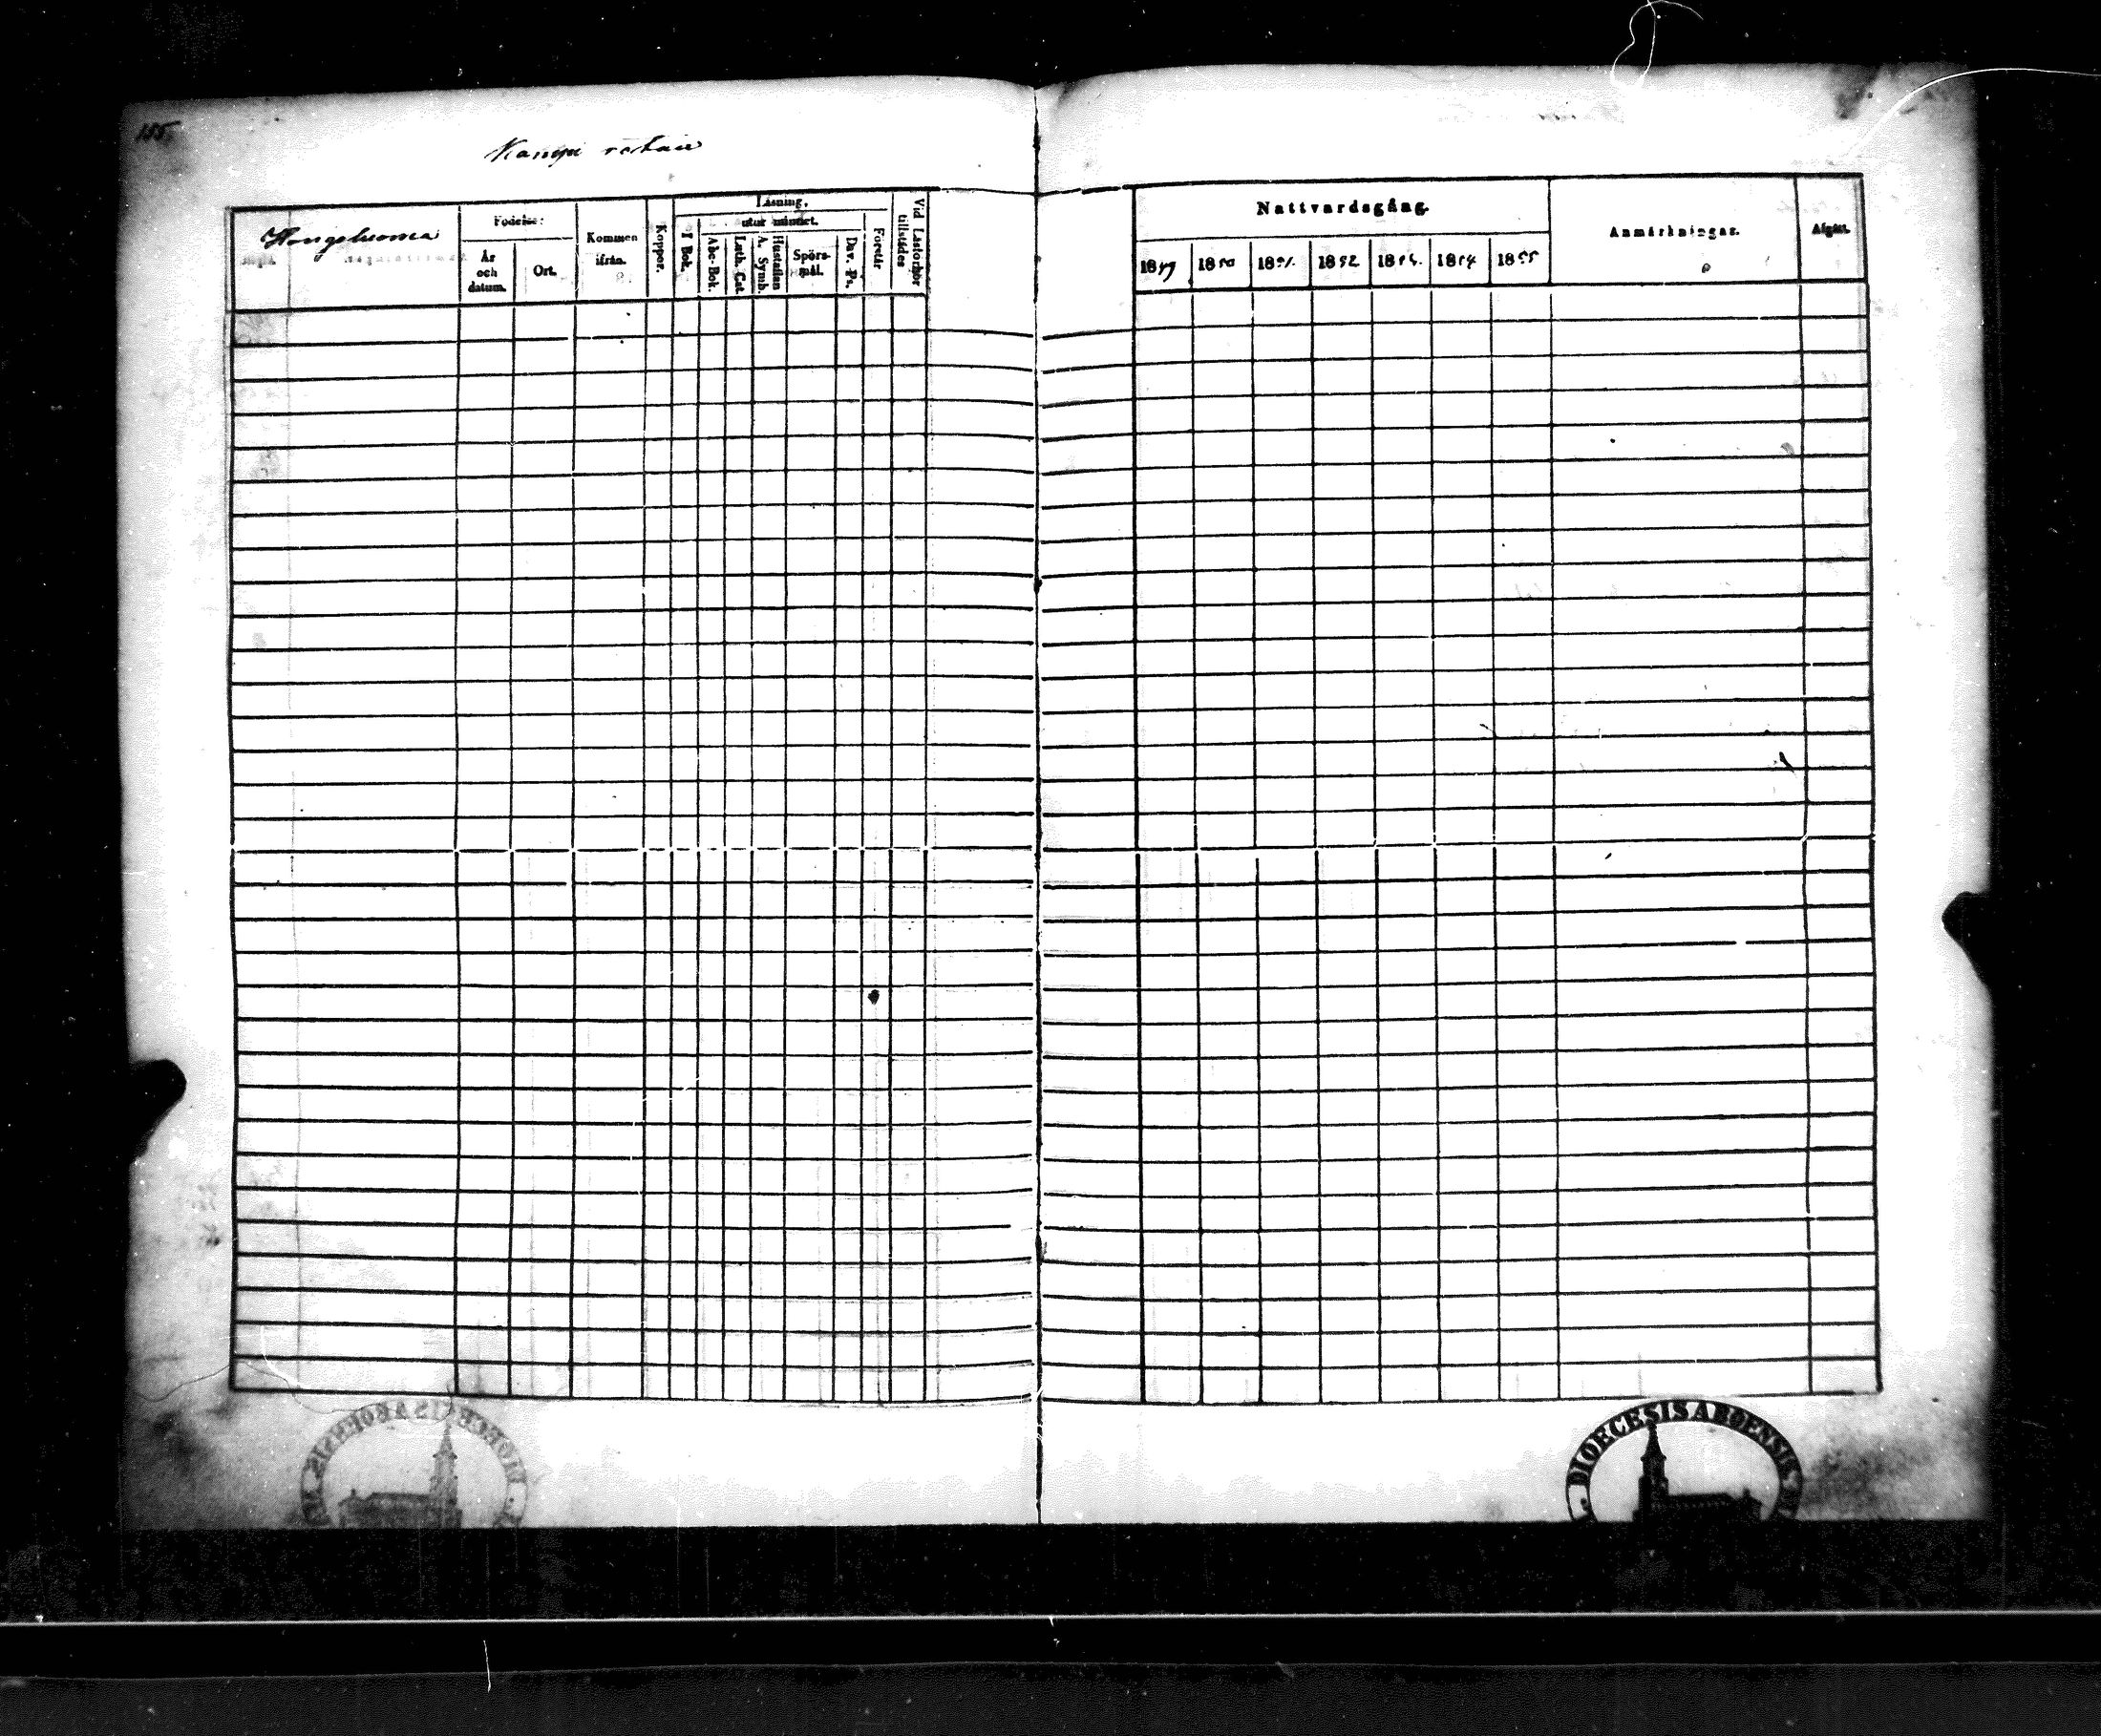 155
Hongoluoma
Födelse:
År och datum.
Ort.
Kommen ifrån.
Koppor.
Läsning,
I Bok.
utur minnet.
Abc-Bok.
Luth. Cat.
Hustaflan A. Symb.
Spörs-mål.
Dav. Ps.
Förstår
Vid Läsförhör tillstädes
Nattvardsgång.
1849 1850 1851. 1852. 1853. 1854 1855
Anmärkningar.
Afgått.
DIOECESIS ABOENSIS